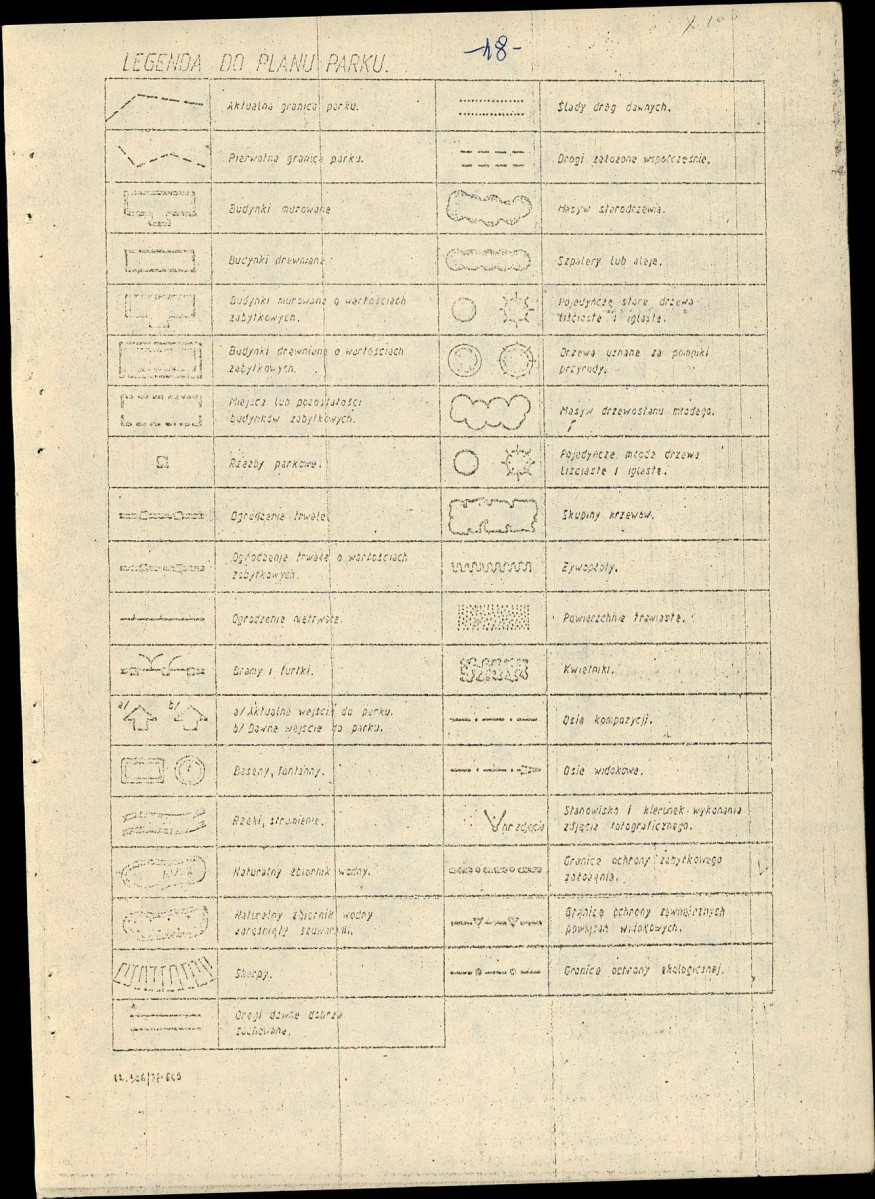 -18-
LEGENDA DO PLANU PARKU.
Aktualna granica parku.
Pierwotna granica parku.
Budynki murowane
Budynki drewniane.
Budynki murowane o wartościach
zabytkowych.
Budynki drewniane o wartościach
zabytkowych.
Miejsca lub pozostałości
budynków zabytkowych.
Rzeźby parkowe.
Ogrodzenie trwałe.
Ogrodzenie trwałe o wartościach
zabytkowych.
Ogrodzenie nietrwałe.
Bramy i furtki.
a/ b/
a/ Aktualne wejście do parku.
b/ Dawne wejście do parku.
Baseny, fontanny.
Rzeki, strumienie.
Naturalny zbiornik wodny.
Naturalny zbiornik wodny
zarośnięty szuwarami.
Skarpy.
Drogi dawne dobrze
zachowane.
Ślady dróg dawnych.
Drogi założone współcześnie.
Masyw starodrzewia.
Szpalery lub aleje.
Pojedyńcze stare drzewa
liściaste i iglaste.
Drzewa uznane za pomniki
przyrody.
Masyw drzewostanu młodego.
Pojedyńcze młode drzewa
liściaste i iglaste.
Skupiny krzewów.
Żywopłoty.
Powierzchnie trawiaste.
Kwietniki.
Osie kompozycji.
Osie widokowe.
nr zdjęcia
Stanowisko i kierunek wykonania
zdjęcia fotograficznego.
Granice ochrony zabytkowego
założenia.
Granice ochrony zewnętrznych
powiązań widokowych.
Granice ochrony ekologicznej.